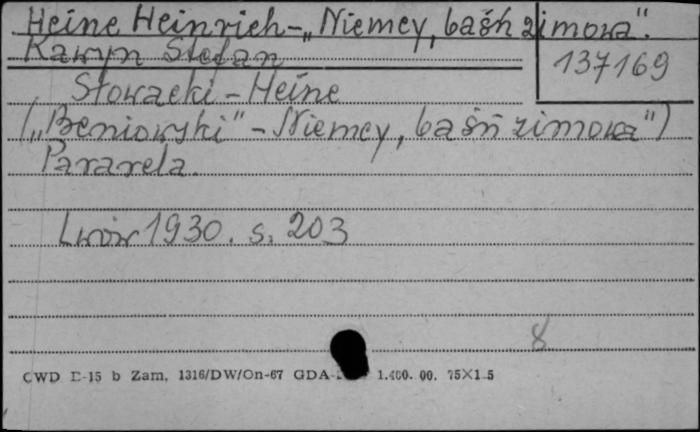 Heine Heinrich - „Niemcy, baśń zimowa".
137169
Kawyn Stefan
Słowacki - Heine
(„Beniowski" - Niemcy, baśń zimowa")
Pararela.
Lwów 1930. s. 203
8
CWD E-15 b Zam. 1316/DW/On-67 GDA- 1.400. 00. 75X1 5